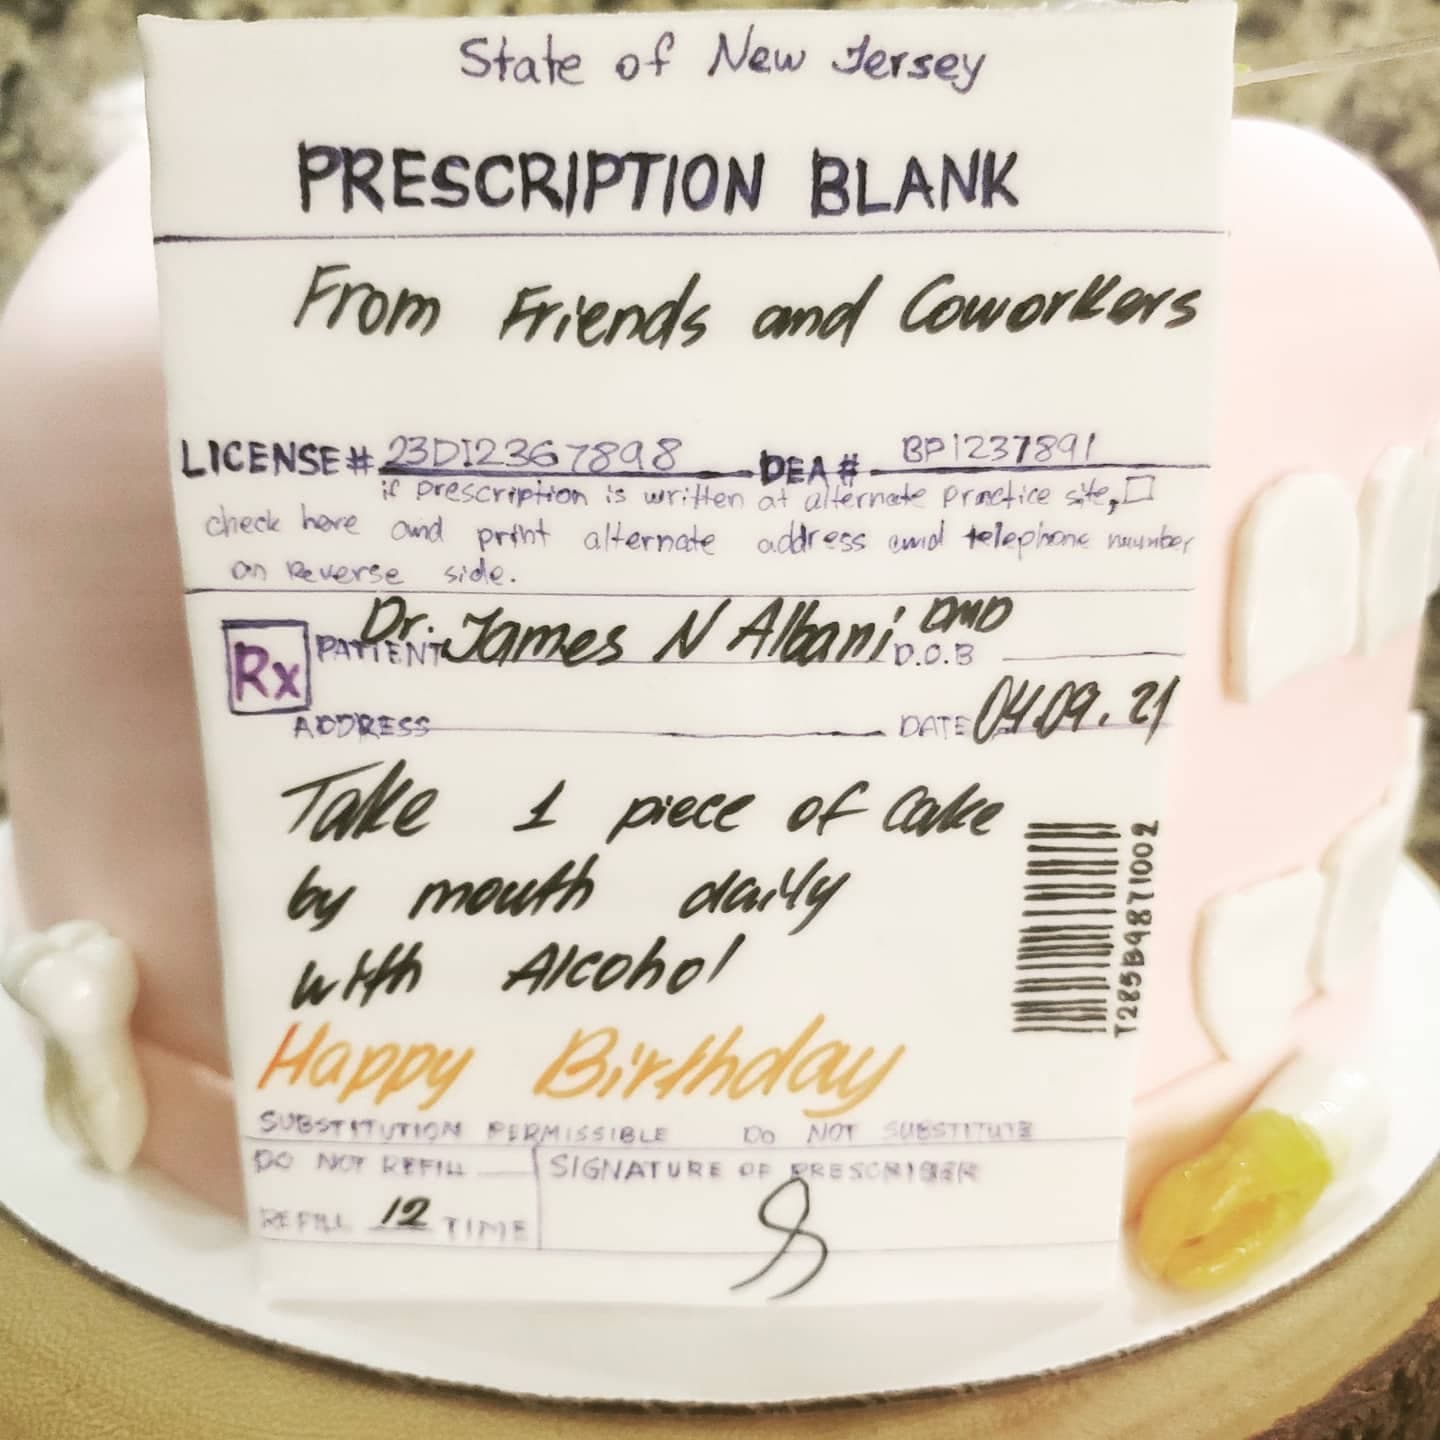 State of New Jersey
PRESCRIPTION BLANK
From Friends and Coworkers
LICENSE# 23DI2367898 DEA# BP1237891
if prescription is written at alternate practice site, □
check here and print alternate address and telephone number
on Reverse side.
Rx PATIENT Dr. James N Albani DMD D.O.B
ADDRESS DATE 04.09.21
Take 1 piece of Cake
by mouth daily
with Alcohol
T285B9871002
Happy Birthday
SUBSTITUTION PERMISSIBLE DO NOT SUBSTITUTE
DO NOT REFILL SIGNATURE OF PRESCRIBER
REFILL 12 TIME